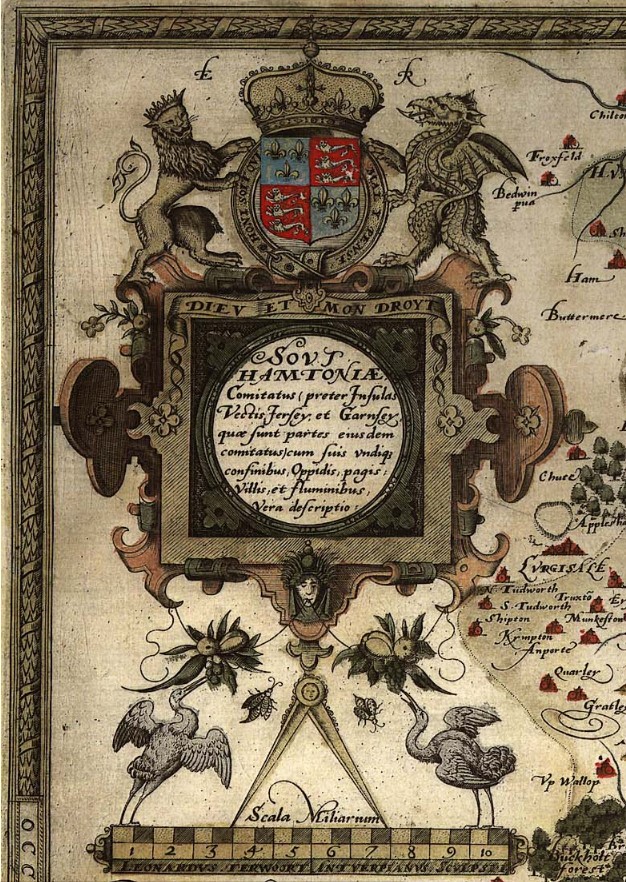 E R
HONI SOIT
MAL Y PENSE
DIEV ET MON DROYT
SOVT
HAMTONIÆ
Comitatus (preter Insulas
Vectis, Jersey, et Garnsey,
quæ sunt partes eiusdem
comitatus) cum suis vndiq;
confinibus, Oppidis, pagis:
Villis, et fluminibus,
Vera descriptio:
Scala Miliarium
1 2 3 4 5 6 7 8 9 10
LEONARDVS TERWOORT ANTVERPIANVS SCVLPSIT
OCC
Chilton
Froxfeld
Bedwin
pua
HVS
Sh
Ham
Buttermere
Chute
Applesha
LVRGISALE
N. Tudworth
Truxto
S. Tudworth
Shipton
Munkeston
Kympton
Anporte
Quarley
Gratley
Vp Wallop
Buckholt
forest